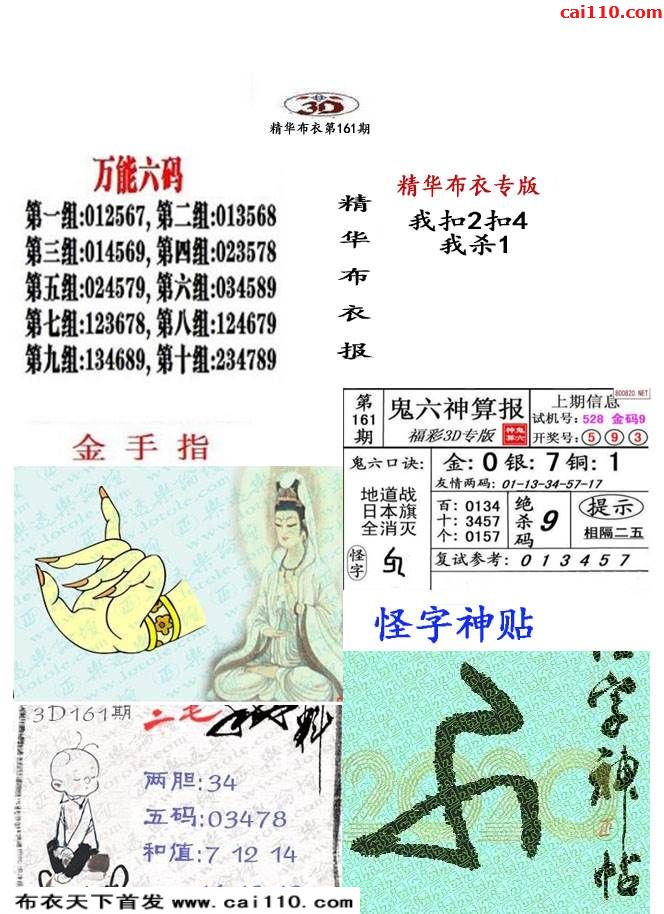 cai110.com
3D
精华布衣第161期
万能六码
第一组:012567,第二组:013568
第三组:014569,第四组:023578
第五组:024579,第六组:034589
第七组:123678,第八组:124679
第九组:134689,第十组:234789
精华布衣报
精华布衣专版
我扣2扣4
我杀1
金手指
第161期
鬼六神算报
福彩3D专版
上期信息
800820.NET
试机号:528 金码9
开奖号:593
鬼六口诀:
金:0银:7铜:1
友情两码:01-13-34-57-17
地道战
日本旗
全消灭
百:0134
十:3457
个:0157
绝杀码
9
提示
相隔二五
怪字
复试参考:013457
怪字神贴
怪字神帖
2020
3D161期
两胆:34
五码:03478
和值:7 12 14
布衣天下首发 www.cai110.com